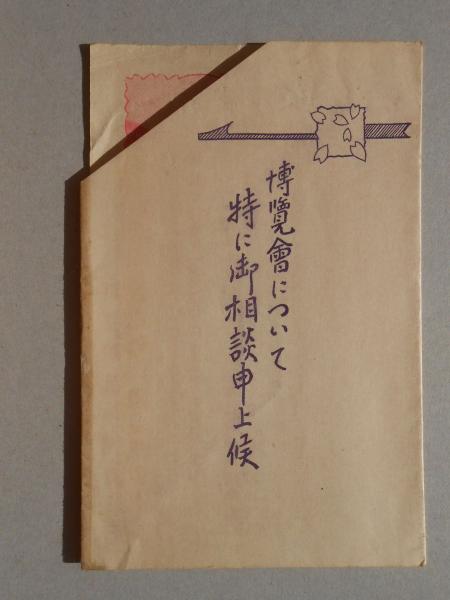 博覽會について
特に御相談申上候